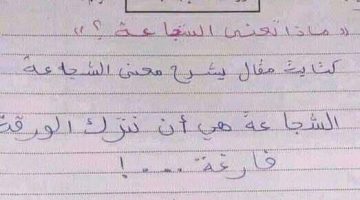 « ماذا تعني الشجاعة ؟ »
كتابة مقال يشرح معنى الشجاعة
الشجاعة هي أن نترك الورقة
فارغة ....!